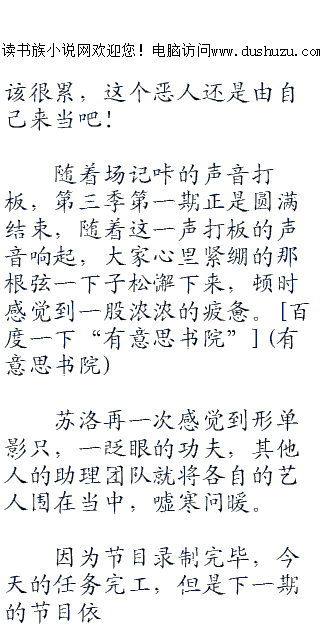 读书族小说网欢迎您！电脑访问www.dushuzu.com
该很累，这个恶人还是由自
己来当吧！
随着场记咔的声音打
板，第三季第一期正是圆满
结束，随着这一声打板的声
音响起，大家心里紧绷的那
根弦一下子松澥下来，顿时
感觉到一股浓浓的疲惫。[百
度一下“有意思书院”](有
意思书院)
苏洛再一次感觉到形单
影只，一眨眼的功夫，其他
人的助理团队就将各自的艺
人围在当中，嘘寒问暖。
因为节目录制完毕，今
天的任务完工，但是下一期
的节目依